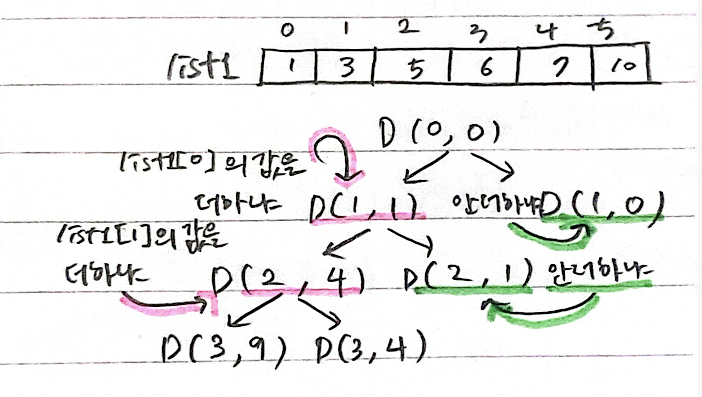 0 1 2 3 4 5
list1 1 3 5 6 7 10
D(0,0)
list1[0]의 값은
더하냐 D(1,1) 안더하냐 D(1,0)
list1[1]의 값은
더하냐 D(2,4) D(2,1) 안더하냐
D(3,9) D(3,4)